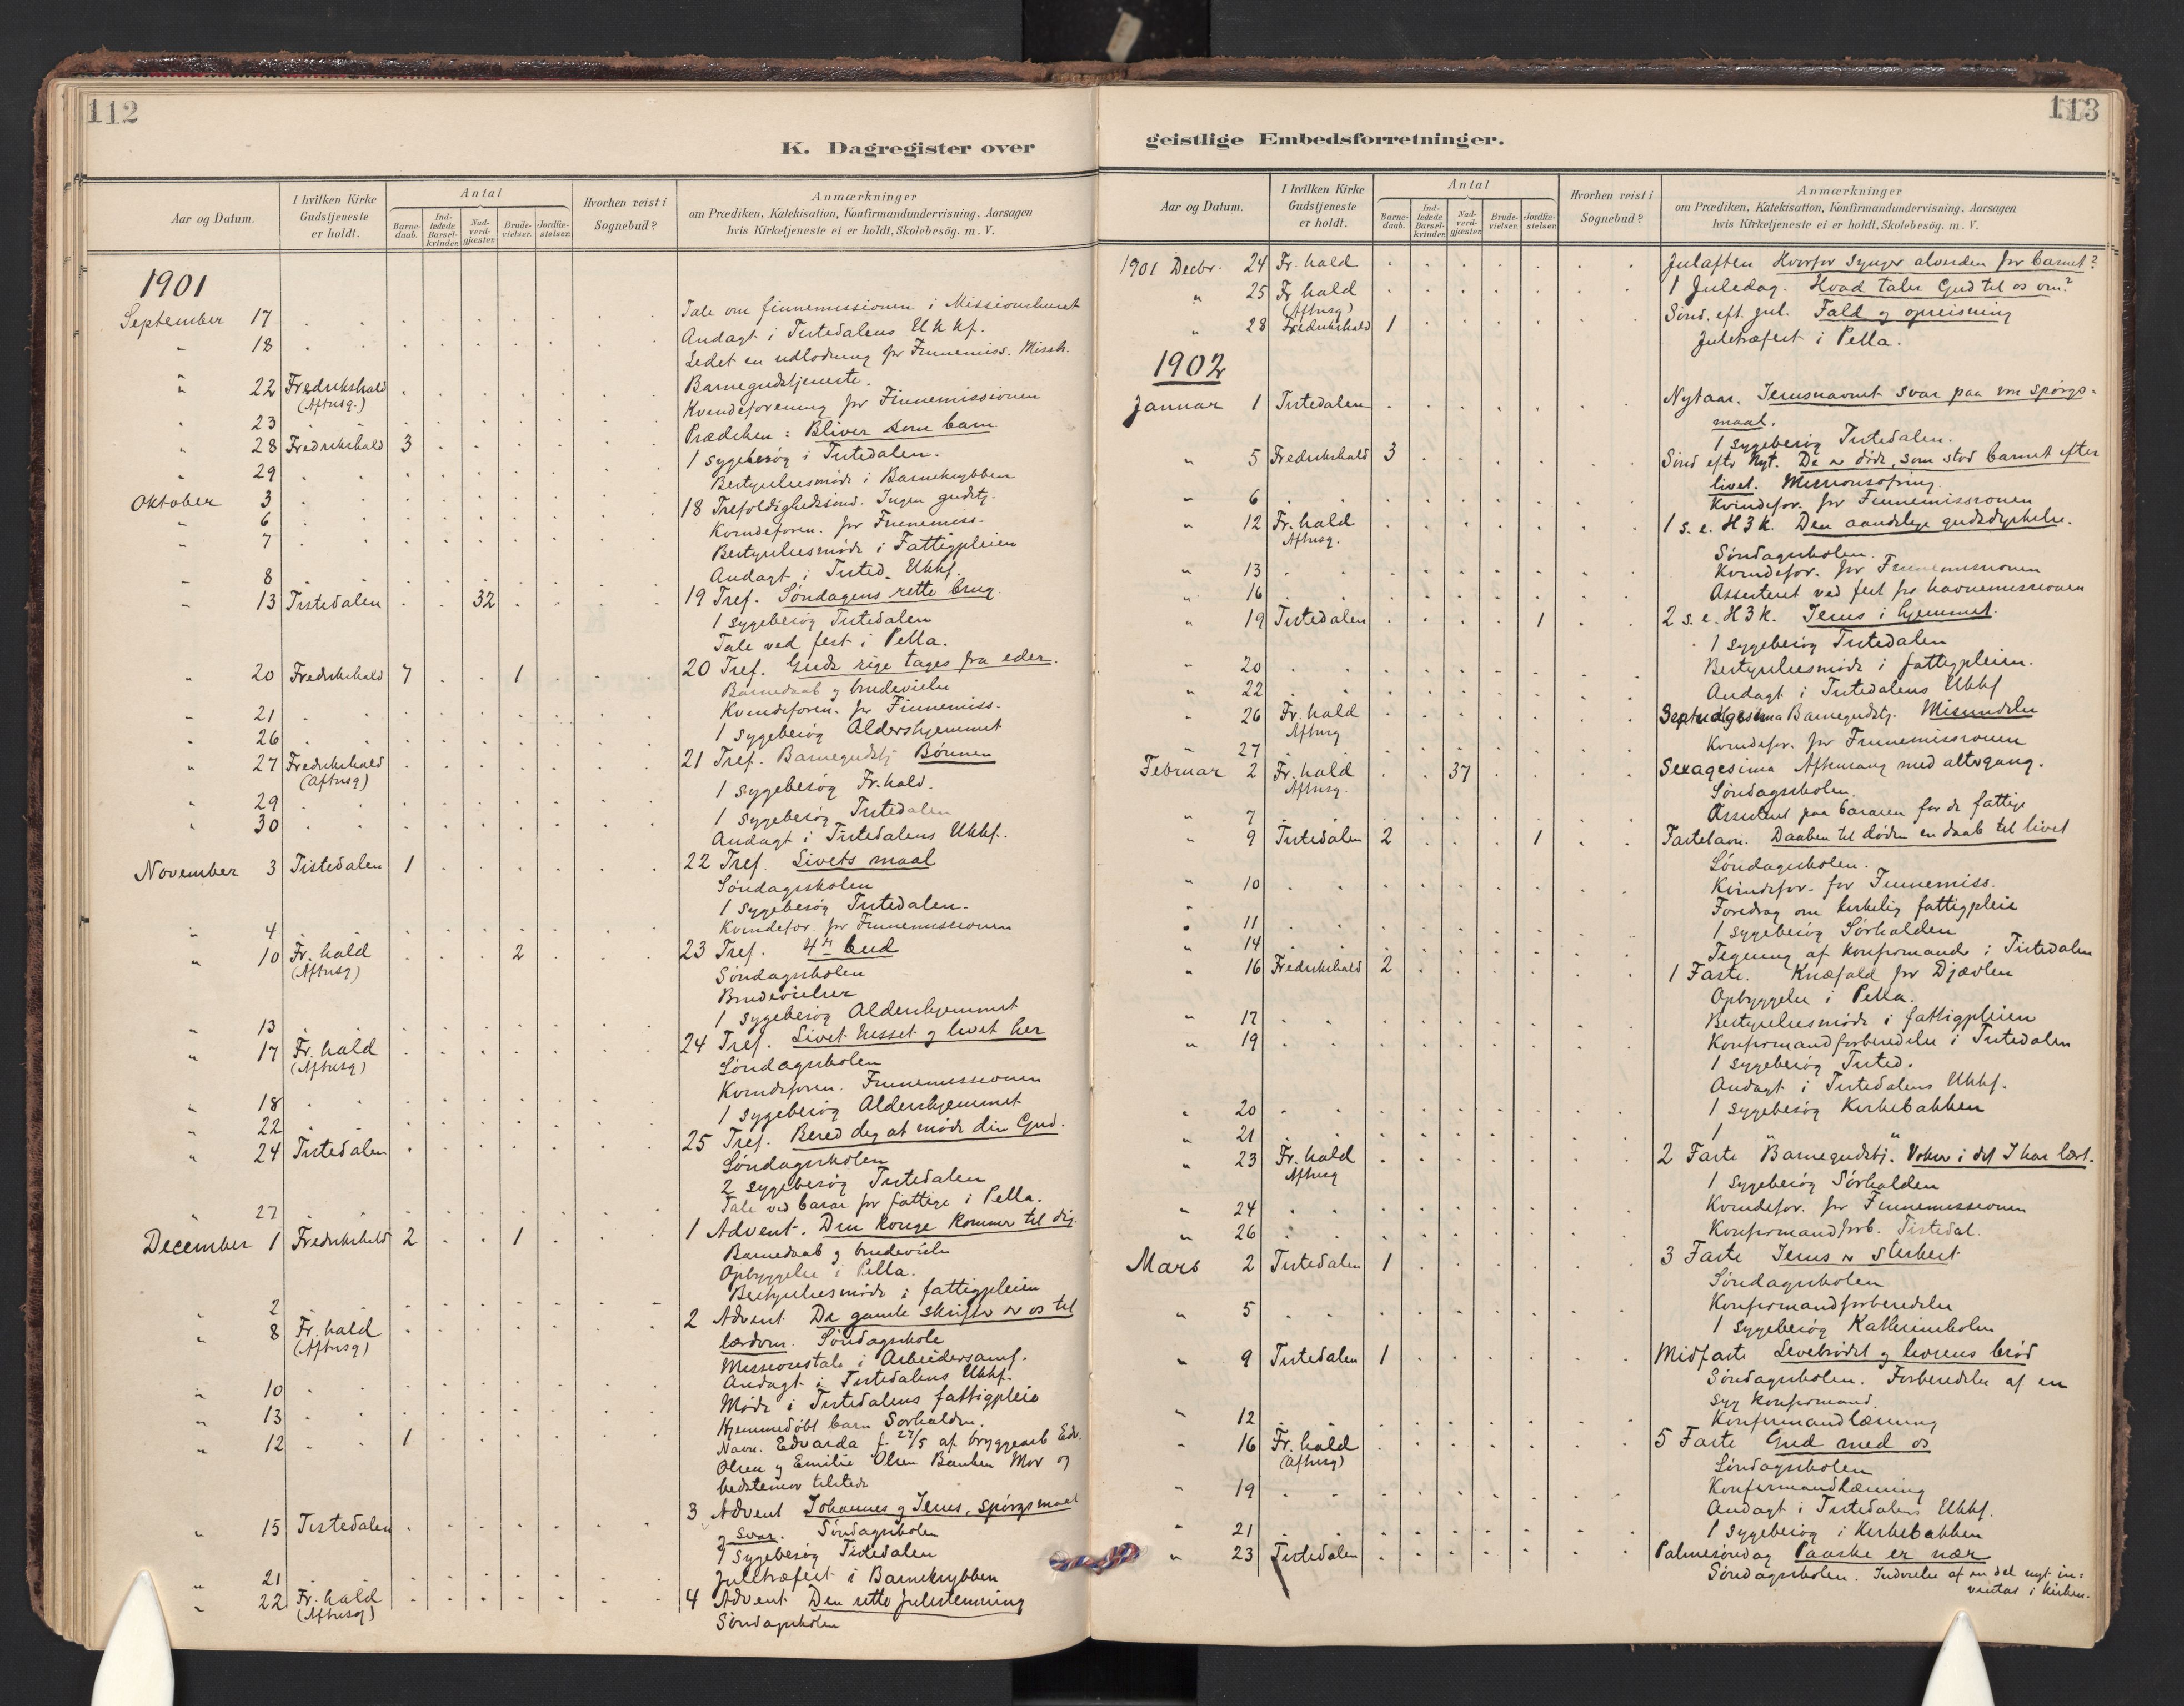 112
K. Dagregister over
Aar og Datum.
I hvilken Kirke Gudstjeneste er holdt.
Antal
Barnedaab.
Indledede Barselkvinder.
Nadverdgjæster.
Brudevielser.
Jordfæstelser.
Hvorhen reist i Sognebud?
Anmærkninger
om Prædiken, Katekisation, Konfirmandundervisning, Aarsagen
hvis Kirketjeneste ei er holdt, Skolebesøg. m. V.
1901
September 17 Tale om finnemissionen i Missionshuset
Andagt i Tistedalens Ukkf.
" 18 Ledet en udlodning for Finnemiss. Missh.
" 22 Fredrikshald (Aftnsg.) Barnegudstjeneste.
" 23 Kvindeforening for Finnemissionen
" 28 Fredrikshald 3 Prædiken: Bliver som barn
1 sygebesøg i Tistedalen.
" 29 Bestyrelsesmøde i Barnekrybben
Oktober 3 18 Trefoldighedssønd. Ingen gudstj.
" 6 Kvindeforen. for Finnemiss.
" 7 Bestyrelsesmøde i Fattigpleien
" 8 Andagt i Tisted. Ukkf.
" 13 Tistedalen 32 19 Tref. Søndagens rette brug.
1 sygebesøg Tistedalen
Tale ved fest i Pella.
" 20 Fredrikshald 7 1 20 Tref. Guds rige tages fra eder.
Barnedaab og brudevielse
" 21 Kvindeforen. for Finnemiss.
" 26 1 sygebesøg Aldershjemmet
" 27 Fredrikshald (Aftnsg) 21 Tref. Barnegudstj Bønnen
1 sygebesøg Fr.hald.
" 29 1 sygebesøg Tistedalen
" 30 Andagt i Tistedalens Ukkf.
November 3 Tistedalen 1 22 Tref. Livets maal
Søndagsskolen
1 sygebesøg Tistedalen.
" 4 Kvindefor. for Finnemissionen
" 10 Fr. hald (Aftnsg) 2 23 Tref. 4de bud
Søndagsskolen
Brudevielser
" 13 1 sygebesøg Aldershjemmet
" 17 Fr. hald (Aftnsg) 24 Tref. Livet hisset og livet her
Søndagsskolen
" 18 Kvindeforen. Finnemissionen
" 22 1 sygebesøg Aldershjemmet
" 24 Tistedalen 25 Tref. Bered dig at møde din Gud.
Søndagsskolen
2 sygebesøg Tistedalen
" 27 Tale ved basar for fattige i Pella.
December 1 Fredrikshald 2 1 1 Advent. Din konge kommer til dig.
Barnedaab og brudevielse
Opbyggelse i Pella.
" 2 Bestyrelsesmøde i fattigpleien
" 8 Fr. hald (Aftnsg) 2 Advent De gamle skrifter er os til
lærdom. Søndagsskole
Missionstale i Arbeidersamf.
" 10 Andagt i Tistedalens Ukkf.
" 13 Møde i Tistedalens fattigpleie
" 12 1 Hjemmedøbt barn Sørhalden.
Navn. Edvarda f. 27/5 af bryggearb Edv.
Olsen og Emilie Olsen Banken Mor og
bedstemor tilstede
" 15 Tistedalen 3 Advent Johannes og Jesus, spørgsmaal
og svar. Søndagsskolen
1 sygebesøg Tistedalen
" 21 Juletræfest i Barnekrybben
" 22 Fr. hald (Aftnsg) 4 Advent Den rette julestemning
Søndagsskolen
113
geistlige Embedsforretninger.
Aar og Datum.
I hvilken Kirke Gudstjeneste er holdt.
Antal
Barnedaab.
Indledede Barselkvinder.
Nadverdgjæster.
Brudevielser.
Jordfæstelser.
Hvorhen reist i Sognebud?
Anmærkninger
om Prædiken, Katekisation, Konfirmandundervisning, Aarsagen
hvis Kirketjeneste ei er holdt, Skolebesøg. m. V.
1901 Decbr. 24 Fr. hald Julaften Hvorfor synger alverden for barnet?
" 25 Fr. hald 1 Juledag. Hvad taler Gud til os om?
" 28 (Aftnsg) Fredrikshald 1 Sønd. eft. jul. Fald og opreisning
Juletræfest i Pella.
1902
Januar 1 Tistedalen Nytaar. Jesusnavnet svar paa vore spørgs-
maal.
1 sygebesøg Tistedalen.
" 5 Fredrikshald 3 Sønd efter Nyt. De er døde, som stod barnet efter
livet. Missionsofring.
" 6 Kvindefor. for Finnemissionen
" 12 Fr. hald Aftnsg. 1 s. e. H3K. Den aandelige gudsdyrkelse.
Søndagsskolen.
" 13 Kvindefor. for Finnemissionen
" 16 Assisteret ved fest for havnemissionen
" 19 Tistedalen 1 2 s. e. H3K. Jesus i hjemmet.
1 sygebesøg Tistedalen
" 20 Bestyrelsesmøde i fattigpleien.
" 22 Andagt i Tistedalens Ukkf
" 26 Fr. hald Aftnsg Septuagesima Barnegudstj. Misundelse
" 27 Kvindefor. for Finnemissionen
Februar 2 Fr. hald Aftnsg. 37 Sexagesima Aftensang med altergang.
Søndagsskolen.
" 7 Assisteret paa basaren for de fattige
" 9 Tistedalen 2 1 Fastelavn. Daaben til døden en daab til livet
Søndagsskolen.
" 10 Kvindefor. for Finnemiss.
" Foredrag om kirkelig fattigpleie
" 11 1 sygebesøg Sørhalden
" 14 Tegning af konfirmander i Tistedalen
" 16 Fredrikshald 2 1 Faste. Knæfald for Djævlen
Opbyggelse i Pella.
" 17 Bestyrelsesmøde i fattigpleien
" 19 Konfirmandforberedelse i Tistedalen
1 sygebesøg Tisted.
Andagt i Tistedalens Ukkf.
" 20 1 sygebesøg Kirkebakken
" 21 1 " "
" 23 Fr. hald Aftnsg 2 Faste Barnegudstj. Voker i det I har lært.
1 sygebesøg Sørhalden
" 24 Kvindefor. for Finnemissionen
" 26 Konfirmandforb. Tistedal.
Mars 2 Tistedalen 1 3 Faste Jesus er sterkest
Søndagsskolen
" 5 Konfirmandforberedelse
1 sygebesøg Katherinholm
" 9 Tistedalen 1 Midfaste Levebrødet og livsens brød
Søndagsskolen. Forberedelse af en
syg konfirmand.
" 12 Konfirmandlæsning
" 16 Fr. hald (Aftnsg) 5 Faste Gud med os
Søndagsskolen
" 19 Konfirmandlæsning
Andagt i Tistedalens Ukkf.
" 21 1 sygebesøg i Kirkebakken
" 23 Tistedalen Palmesøndag Paaske er nær
Søndagsskolen. Indvielse af en del nyt in-
ventar i kirken.